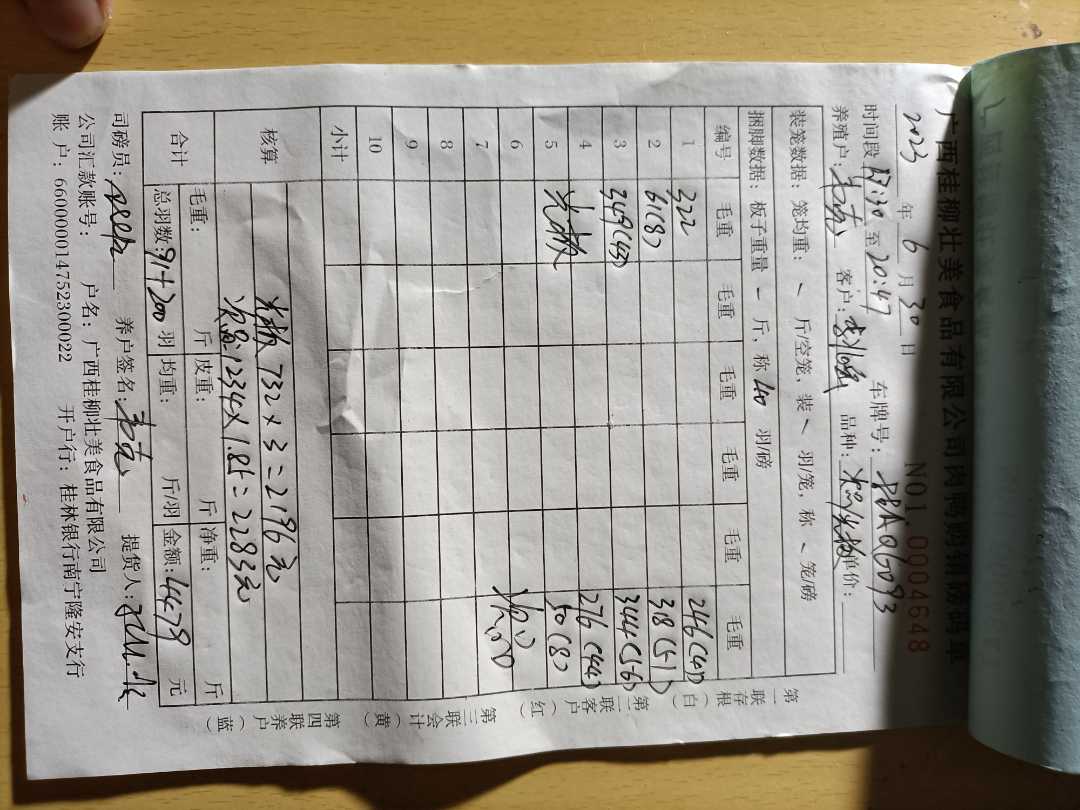 广西桂柳壮美食品有限公司肉鸭购销磅码单
NO1 0004648
2023 年 6 月 30 日 车牌号:
时间段 17:30 至 20:47
养殖户: 客户: 品种: 单价:
装笼数据: 笼均重: 斤/空笼, 装 羽/笼, 称 笼/磅
捆脚数据: 板子重量 斤, 称 40 羽/磅
编号 毛重 毛重 毛重 毛重 毛重 毛重
1 322 246(42)
2 61(8) 318(51)
3 349(43) 344(56)
4 276(44)
5 光板 50(8)
6
7
8
9
10
小计
核算 光板 732×3=2196元
次品:1234×1.85=2283元
合计 毛重: 斤 皮重: 斤 净重: 斤
总羽数:91+200 羽 均重: 斤/羽 金额:4479 元
司磅员: 养户签名: 提货人:
公司汇款账号: 户名: 广西桂柳壮美食品有限公司
账 户: 660000014752300022 开户行: 桂林银行南宁隆安支行
第一联存根(白)
第二联客户(红)
第三联会计(黄)
第四联养户(蓝)